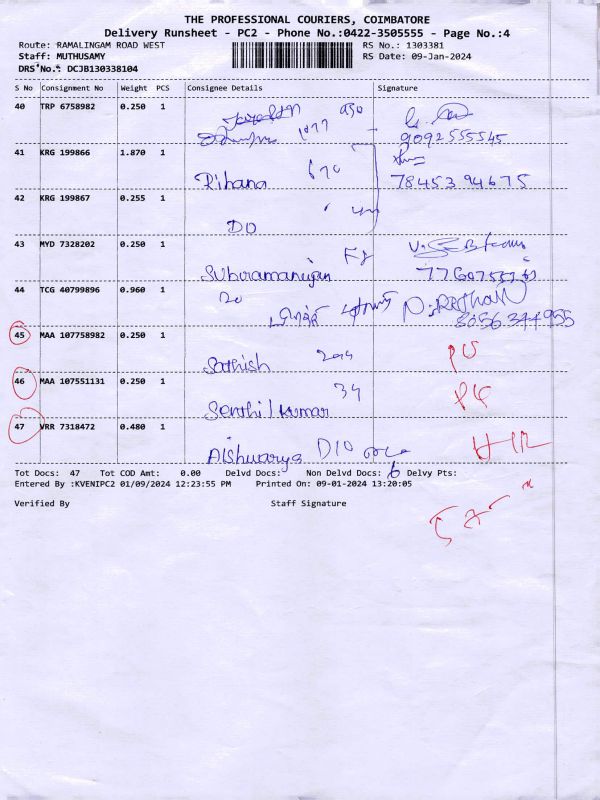 THE PROFESSIONAL COURIERS, COIMBATORE
Delivery Runsheet - PC2 - Phone No.:0422-3505555 - Page No.:4
Route: RAMALINGAM ROAD WEST RS No.: 1303381
Staff: MUTHUSAMY RS Date: 09-Jan-2024
DRS No.: DCJB130338104
S No Consignment No Weight PCS Consignee Details Signature
40 TRP 6758982 0.250 1
9092555545
41 KRG 199866 1.870 1
Rihana 670 7845394675
42 KRG 199867 0.255 1
DO
43 MYD 7328202 0.250 1
Subiramaniyan
44 TCG 40799896 0.960 1
20
8056344955
45 MAA 107758982 0.250 1
Sathish
46 MAA 107551131 0.250 1
34
Senthil kumar
47 VRR 7318472 0.480 1
Aishwarya D10
Tot Docs: 47 Tot COD Amt: 0.00 Delvd Docs: Non Delvd Docs: 6 Delvy Pts:
Entered By :KVENIPC2 01/09/2024 12:23:55 PM Printed On: 09-01-2024 13:20:05
Verified By Staff Signature